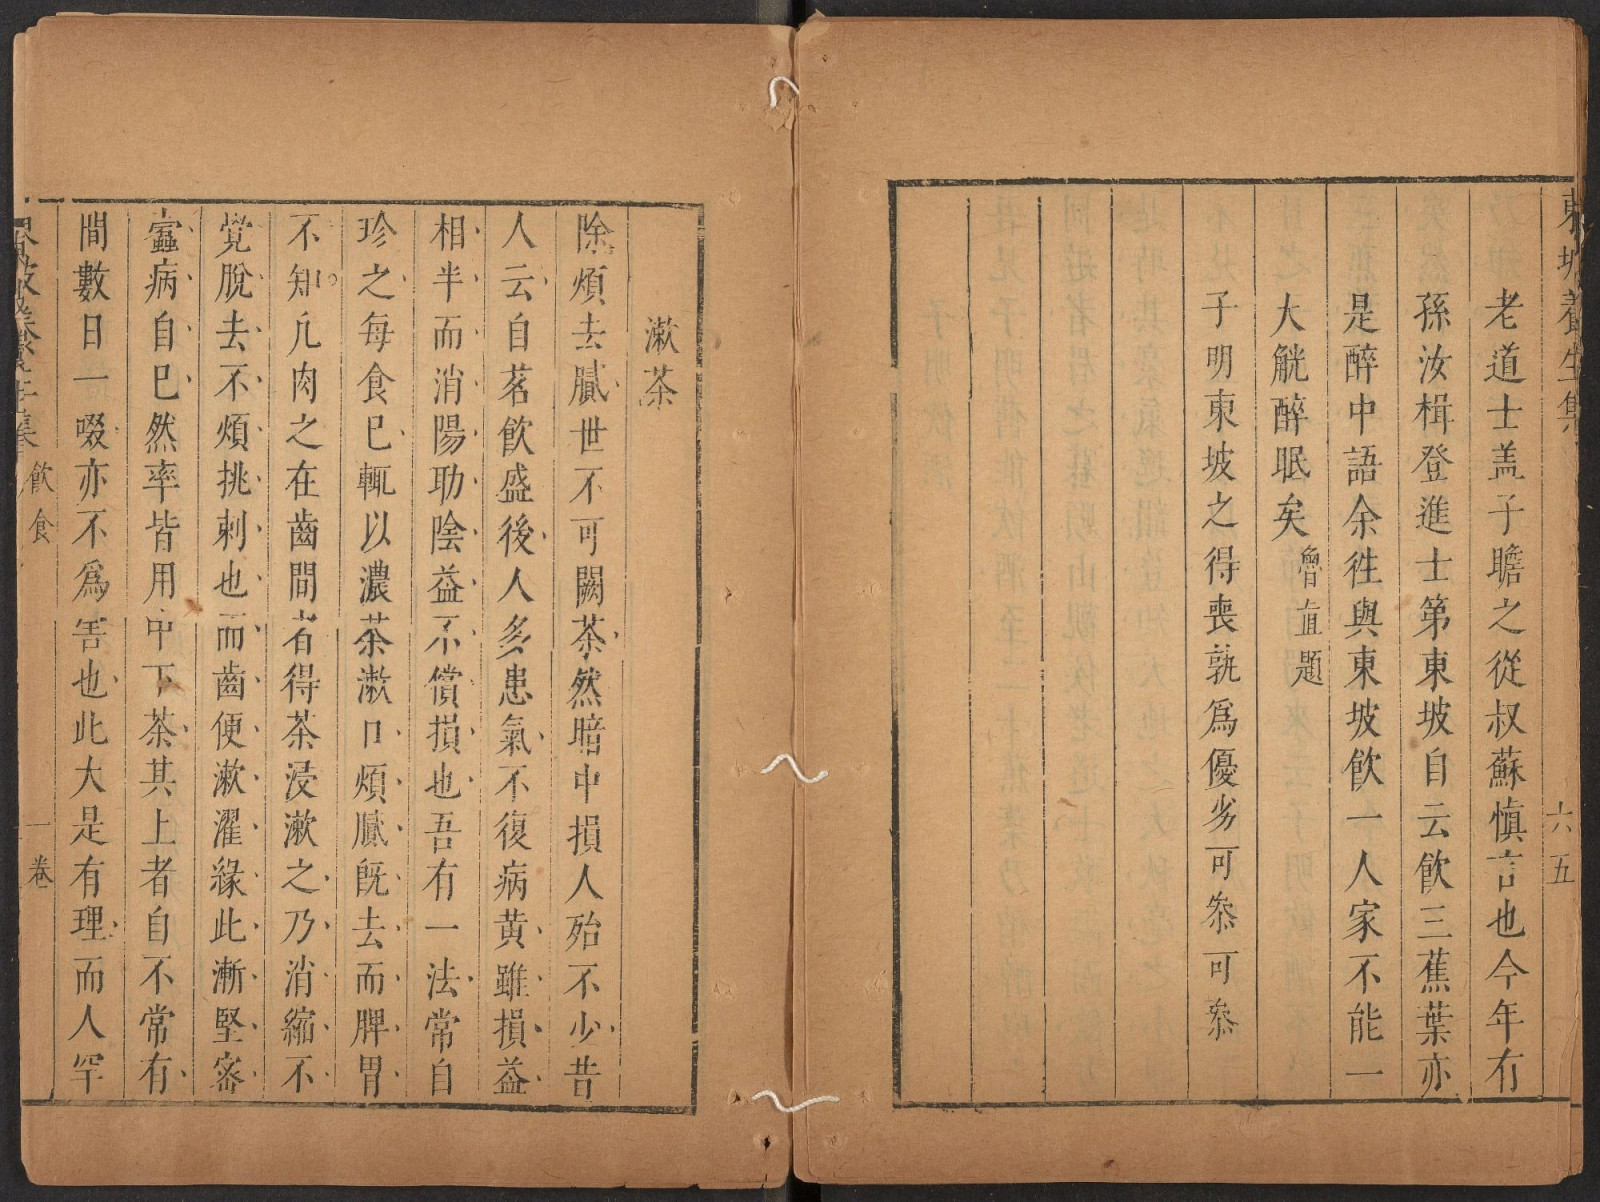 東坡養生集
六五
老道士盖子瞻之從叔蘇慎言也今年有
孫汝楫登進士第東坡自云飲三蕉葉亦
是醉中語余徃與東坡飲一人家不能一
大觥醉眠矣 魯直題
子明東坡之得喪孰為優劣可叅可叅
漱茶
除煩去膩世不可闕茶然暗中損人殆不少昔
人云自茗飲盛後人多患氣不復病黄雖損益
相半而消陽助陰益不償損也吾有一法常自
珍之每食已輒以濃茶漱口煩膩旣去而脾胃
不知凡肉之在齒間者得茶浸漱之乃消縮不
覺脫去不煩挑刺也而齒便漱濯緣此漸堅密
蠹病自已然率皆用中下茶其上者自不常有
間數日一啜亦不爲害也此大是有理而人罕
東坡養生集 飲食
一卷